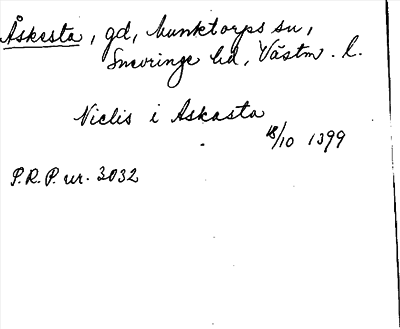 Åskesta, gd, Munktorps sn,
Snevringe hd, Västm. l.
Niclis i Askasta
18/10 1399
P.R.P. nr. 3032